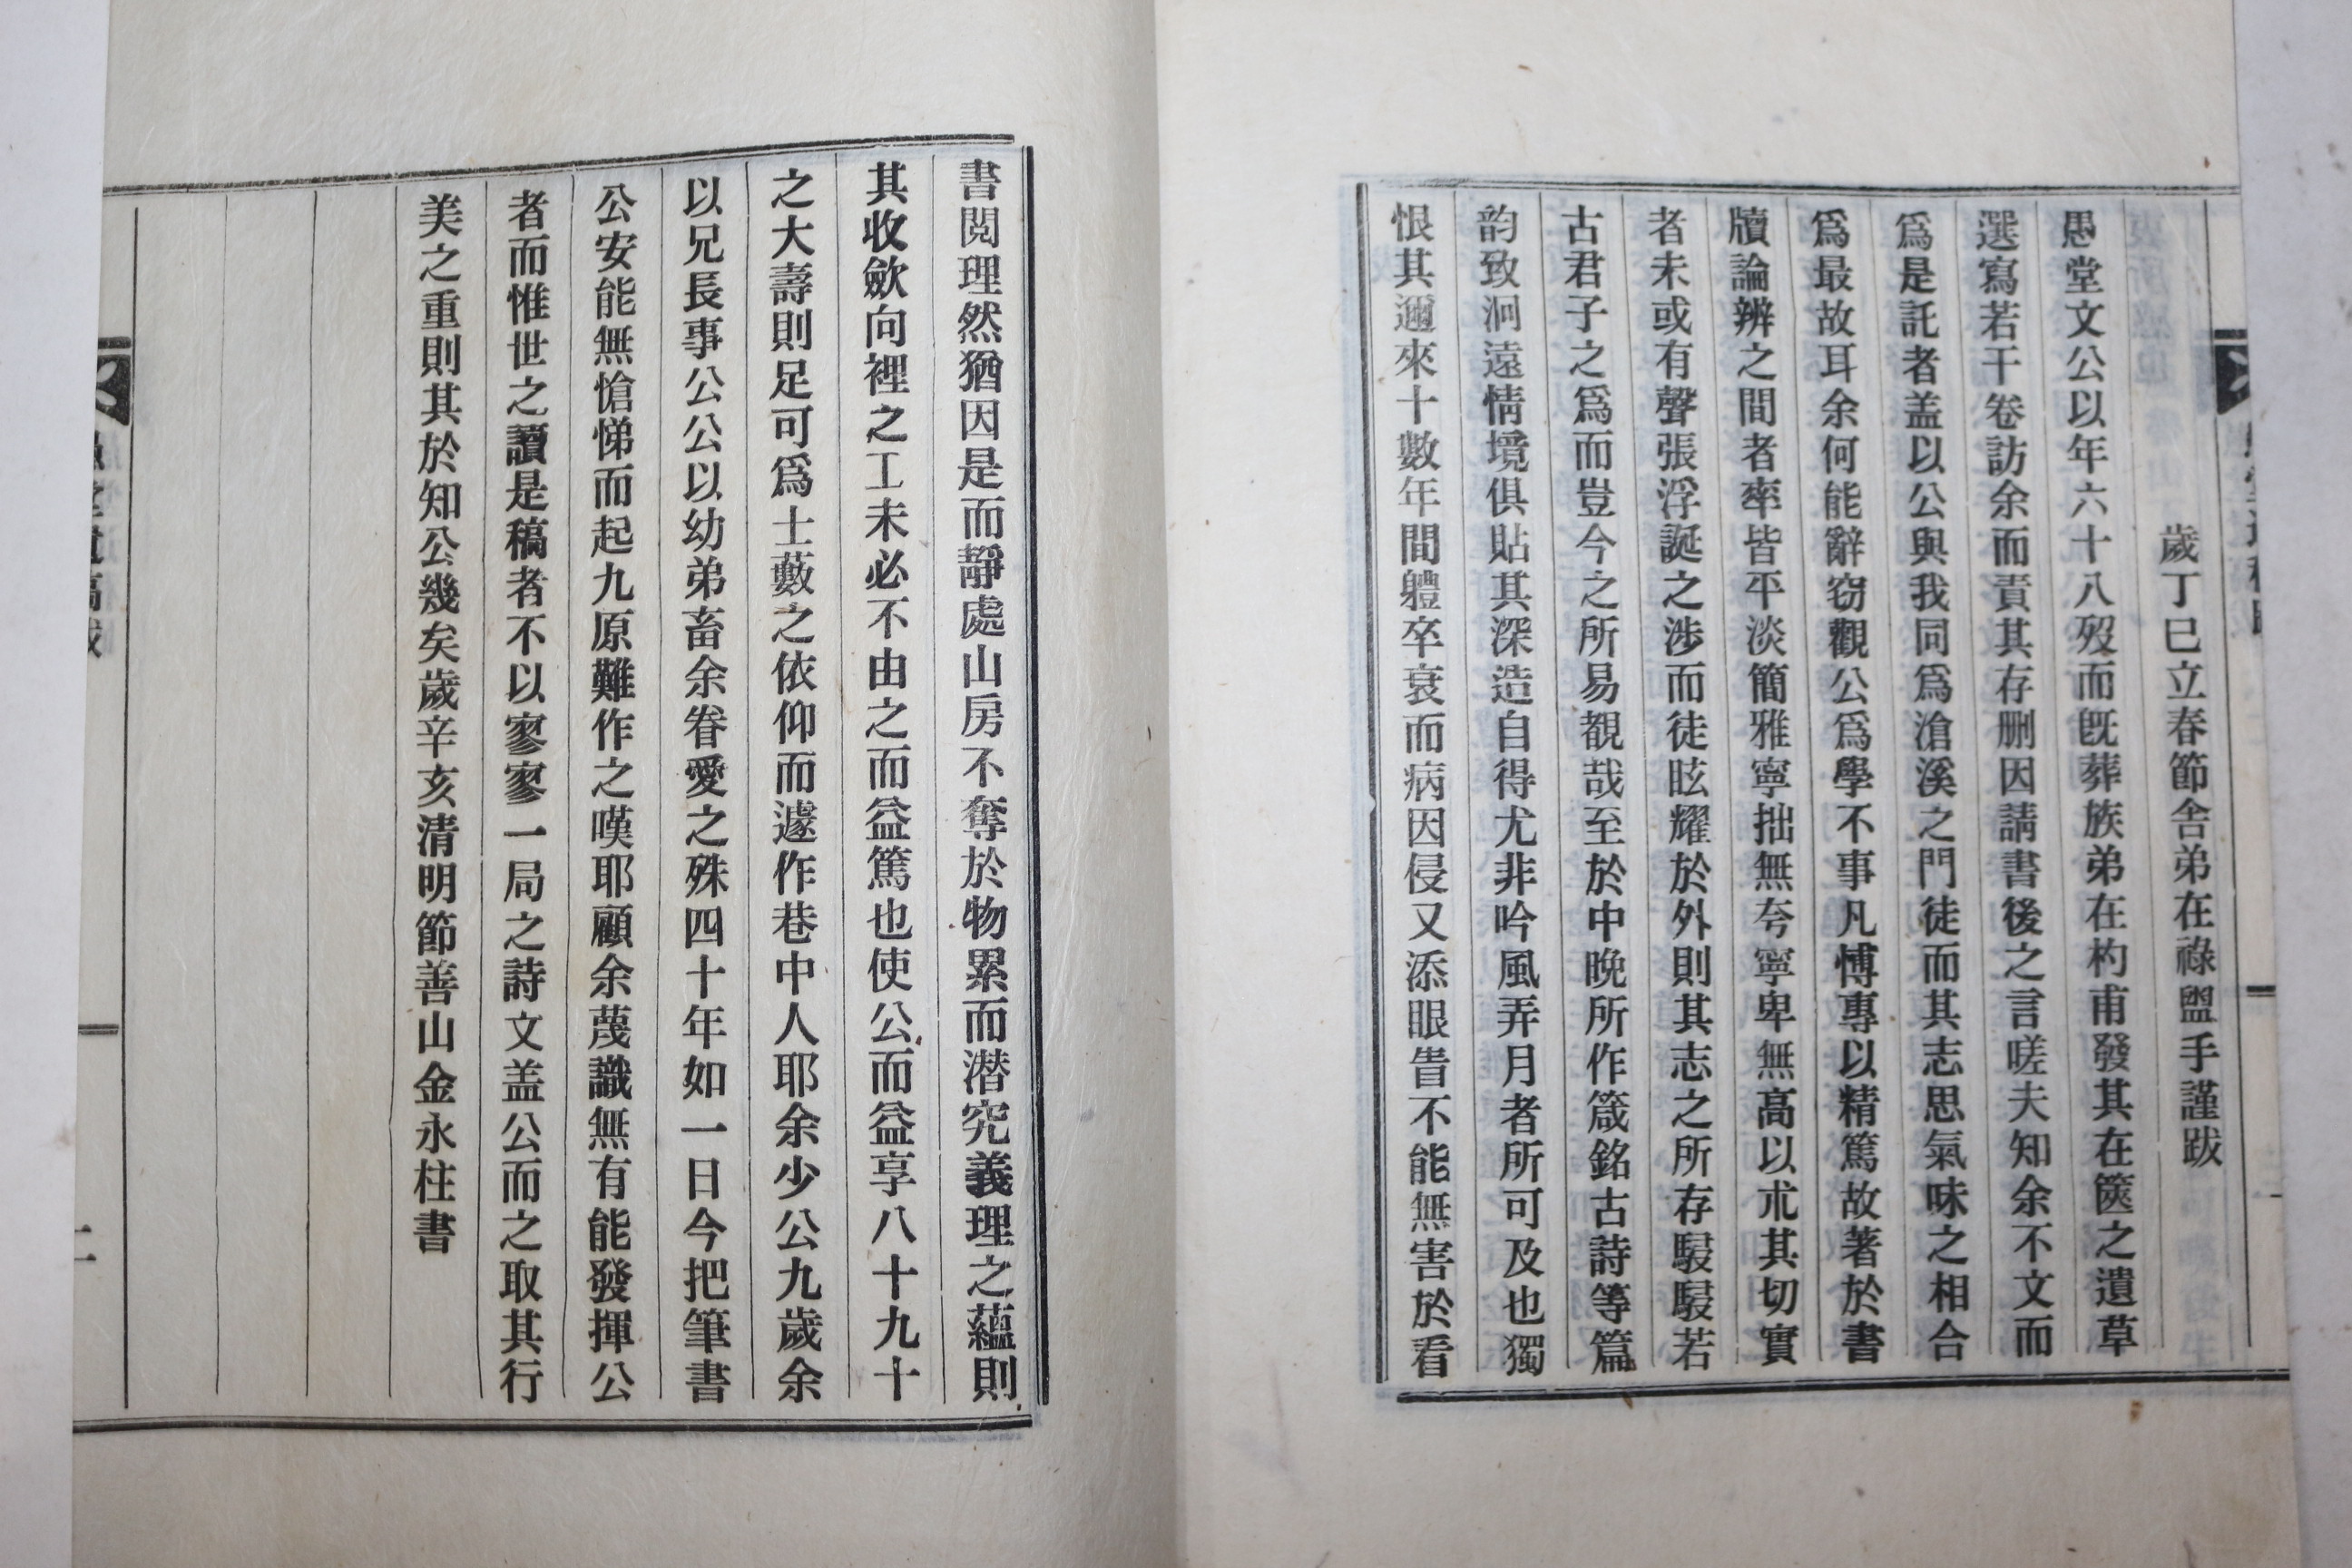 歲丁巳立春節舍弟在祿盥手謹跋
愚堂文公以年六十八歿而旣葬族弟在杓甫發其在篋之遺草
選寫若干卷訪余而責其存删因請書後之言嗟夫知余不文而
爲是託者盖以公與我同爲滄溪之門徒而其志思氣味之相合
爲最故耳余何能辭窃觀公爲學不事凡愽專以精篤故著於書
牘論辨之間者率皆平淡簡雅寧拙無夸寧卑無高以朮其切實
者未或有聲張浮誕之涉而徒眩耀於外則其志之所存駸駸若
古君子之爲而豈今之所易覩哉至於中晩所作箴銘古詩等篇
韵致泂遠情境俱貼其深造自得尤非吟風弄月者所可及也獨
恨其邇來十數年間軆卒衰而病因侵又添眼眚不能無害於看
書閱理然猶因是而靜處山房不奪於物累而潜究義理之蘊則
其收歛向裡之工未必不由之而益篤也使公而益享八十九十
之大壽則足可爲士藪之依仰而遽作巷中人耶余少公九歲余
以兄長事公公以幼弟畜余眷愛之殊四十年如一日今把筆書
公安能無愴悌而起九原難作之嘆耶顧余蔑識無有能發揮公
者而惟世之讀是稿者不以寥寥一局之詩文盖公而之取其行
美之重則其於知公幾矣歲辛亥清明節善山金永柱書
二